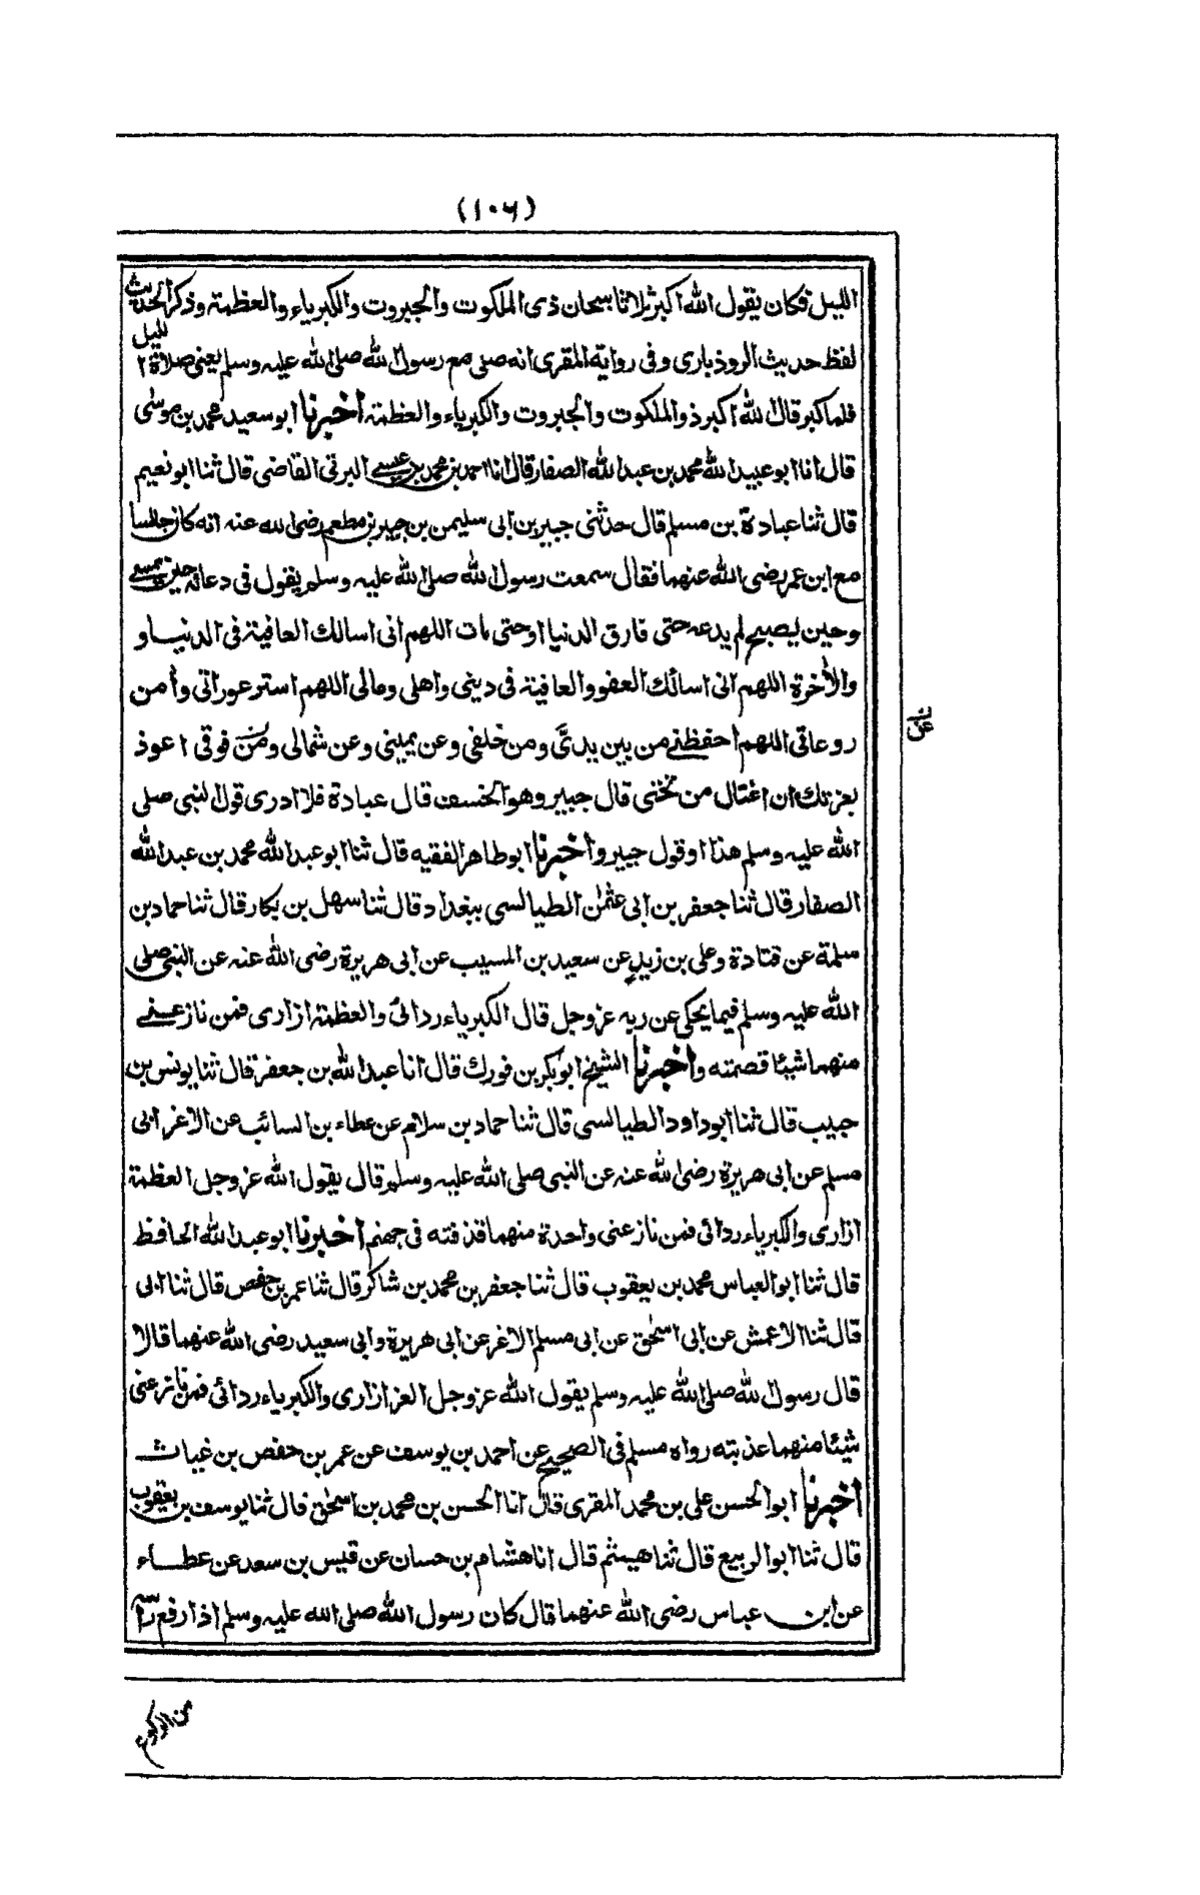 (١٠٦)
الليل فكان يقول الله اكبر ثلاثا سبحان ذى الملكوت والجبروت والكبرياء والعظمة وذكر الحديث
لفظ حديث الروذبارى وفى رواية المقرى انه صلى مع رسول الله صلى الله عليه وسلم يعنى صلاة الليل
فلما كبر قال الله اكبر ذو الملكوت والجبروت والكبرياء والعظمة اخبرنا ابو سعيد محمد بن موسى
قال انا ابو عبيد الله محمد بن عبد الله الصفار قال انا احمد بن محمد بن عيسى البرتى القاضى قال ثنا ابو نعيم
قال ثنا عبادة بن مسلم قال حدثنى جبير بن ابى سليمن بن جبير بن مطعم رضى الله عنه انه كان جالسا
مع ابن عمر رضى الله عنهما فقال سمعت رسول الله صلى الله عليه وسلم يقول فى دعائه حين يمسى
وحين يصبح لم يدعه حتى فارق الدنيا او حتى مات اللهم انى اسالك العافية فى الدنيا و
والأخرة اللهم انى اسالك العفو والعافية فى دينى واهلى ومالى اللهم استر عوراتى وأمن
روعاتى اللهم احفظنى من بين يدىّ ومن خلفى وعن يمينى وعن شمالى ومن فوقى اعوذ
عن
بعزتك ان اغتال من تحتى قال جبير وهو الخسف قال عبادة فلا ادرى قول النبى صلى
الله عليه وسلم هذا او قول جبير واخبرنا ابو طاهر الفقيه قال ثنا ابو عبد الله محمد بن عبد الله
الصفار قال ثنا جعفر بن ابى عثمن الطيالسى ببغداد قال ثنا سهل بن بكار قال ثنا حماد بن
سلمة عن قتادة وعلى بن زيد عن سعيد بن المسيب عن ابى هريرة رضى الله عنه عن النبى صلى
الله عليه وسلم فيما يحكى عن ربه عز وجل قال الكبرياء ردائى والعظمة ازارى فمن نازعنى
منهما شيئا قصمته واخبرنا الشيخ ابو بكر بن فورك قال انا عبد الله بن جعفر قال ثنا يونس بن
حبيب قال ثنا ابو داود الطيالسى قال ثنا حماد بن سلام عن عطاء بن السائب عن الاغر ابى
مسلم عن ابى هريرة رضى الله عنه عن النبى صلى الله عليه وسلم قال يقول الله عز وجل العظمة
ازارى والكبرياء ردائى فمن نازعنى واحدة منهما قذفته فى جهنم اخبرنا ابو عبد الله الحافظ
قال ثنا ابو العباس محمد بن يعقوب قال ثنا جعفر بن محمد بن شاكر قال ثنا عمر بن حفص قال ثنا ابى
قال ثنا الاعمش عن ابى اسحق عن ابى مسلم الاغر عن ابى هريرة وابى سعيد رضى الله عنهما قالا
قال رسول الله صلى الله عليه وسلم يقول الله عز وجل العز ازارى والكبرياء ردائى فمن نازعنى
شيئا منهما عذبته رواه مسلم فى الصحيح عن احمد بن يوسف عن عمر بن حفص بن غياث
اخبرنا ابو الحسن على بن محمد المقرى قال انا الحسن بن محمد بن اسحق قال ثنا يوسف بن يعقوب
قال ثنا ابو الربيع قال ثنا هيثم قال انا هشام بن حسان عن قيس بن سعد عن عطاء
عن ابن عباس رضى الله عنهما قال كان رسول الله صلى الله عليه وسلم اذا رفع رأسه
من الركوع